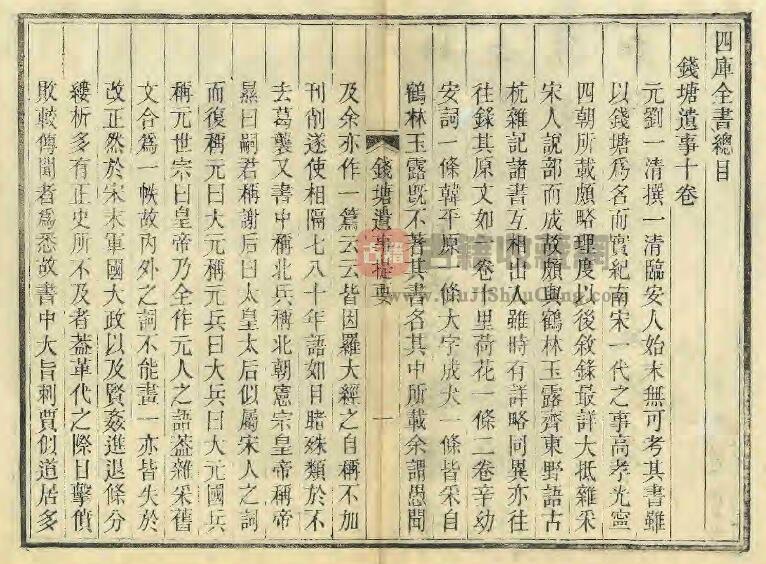 四庫全書總目
錢塘遺事十卷
元劉一清撰一清臨安人始末無可考其書雖
以錢塘爲名而實紀南宋一代之事高孝光寧
四朝所載頗略理度以後敘錄最詳大抵雜采
宋人說部而成故頗與鶴林玉露齊東野語古
杭雜記諸書互相出入雖時有詳略同異亦往
往錄其原文如一卷十里荷花一條二卷辛幼
安詞一條韓平原一條大字成犬一條皆采自
鶴林玉露既不著其書名其中所載余謂愚聞
錢塘遺事提要
一
及余亦作一篇云云皆因羅大經之自稱不加
刊削遂使相隔七八十年語如目睹殊類於不
去葛龔又書中稱北兵稱北朝憲宗皇帝稱帝
㬎曰嗣君稱謝后曰太皇太后似屬宋人之詞
而復稱元曰大元稱元兵曰大兵曰大元國兵
稱元世宗曰皇帝乃全作元人之語葢雜采舊
文合爲一帙故內外之詞不能畫一亦皆失於
改正然於宋末軍國大政以及賢姦進退條分
縷析多有正史所不及者葢革代之際目擊僨
敗較傳聞者爲悉故書中大旨刺賈似道居多
古籍收藏網
www.GuJiShouCang.com